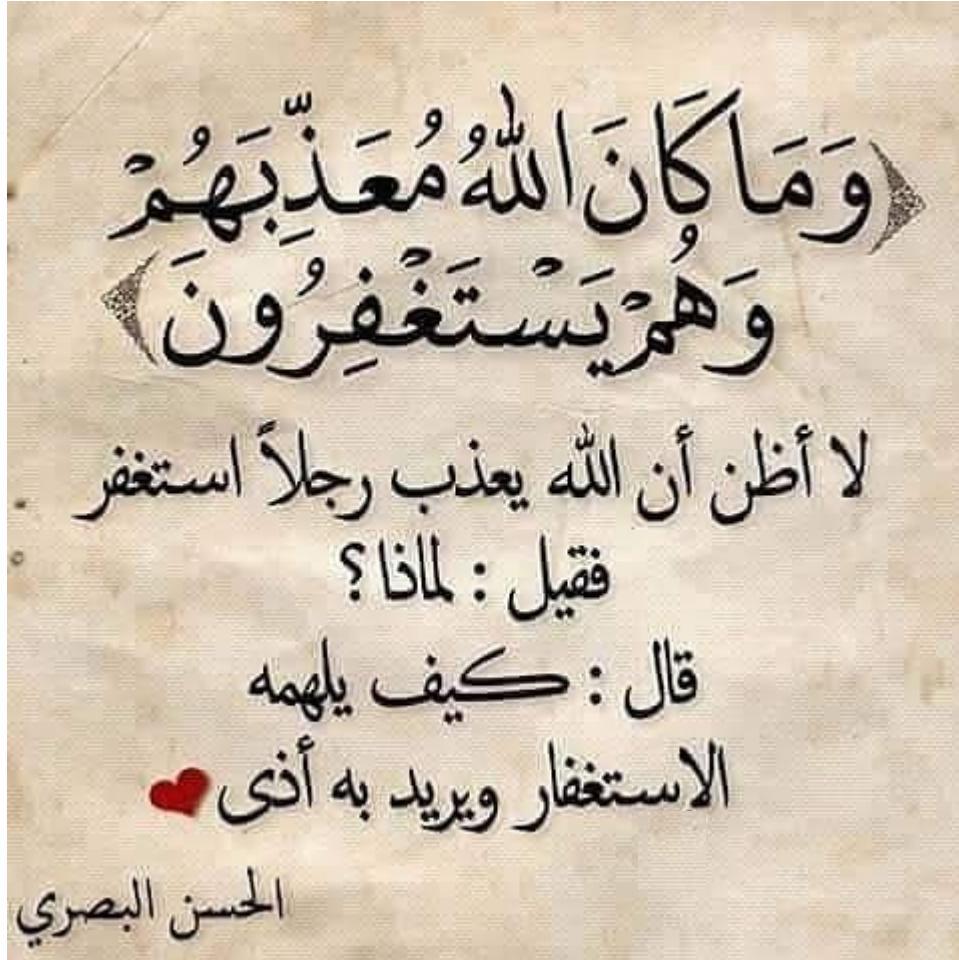 ﴿وَمَا كَانَ اللهُ مُعَذِّبَهُمْ
وَهُمْ يَسْتَغْفِرُونَ﴾
لا أظن أن الله يعذب رجلاً استغفر
فقيل : لماذا ؟
قال : كيف يلهمه
الاستغفار ويريد به أذى
الحسن البصري